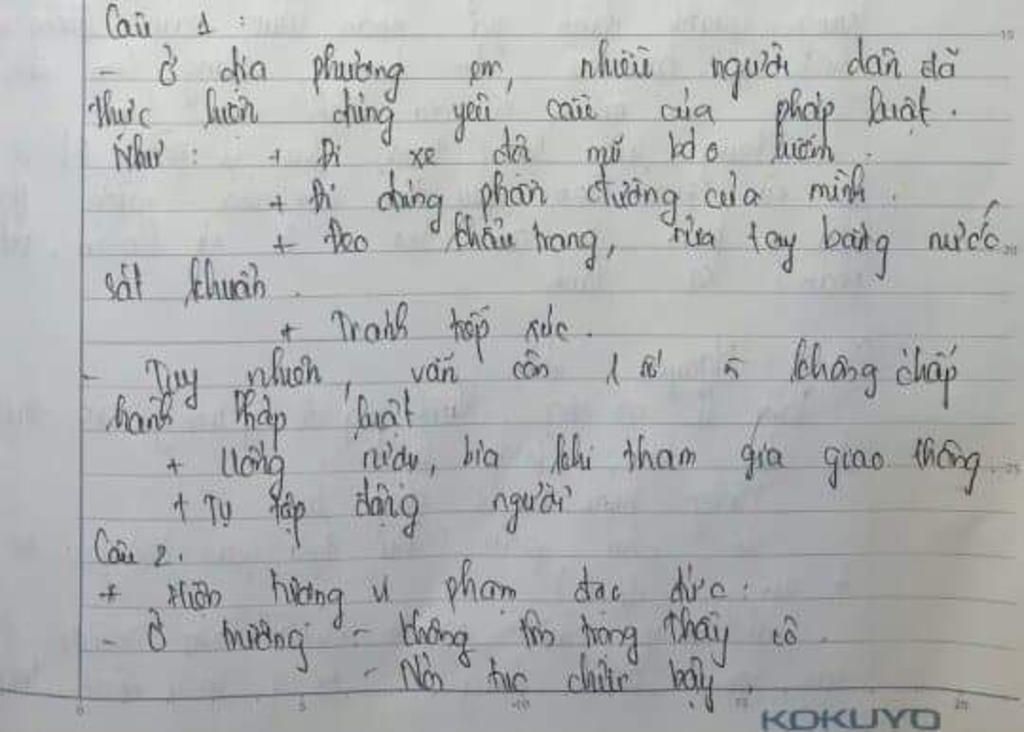 Câu 1 :
- Ở địa phương em, nhiều người dân đã
thực hiện đúng yêu cầu của pháp luật.
Như : + Đi xe đội mũ bảo hiểm.
+ Đi đúng phần đường của mình.
+ Đeo khẩu trang, rửa tay bằng nước
sát khuẩn.
+ Tránh tiếp xúc.
- Tuy nhiên, vẫn còn 1 số khống chấp
hành Pháp luật
+ Uống rượu, bia khi tham gia giao thông.
+ Tụ tập đông người
Câu 2.
+ Hiện tượng vi phạm đạo đức :
- Ở trường - không tôn trọng thầy cô.
- Nói tục chửi bậy.
KOKUYO